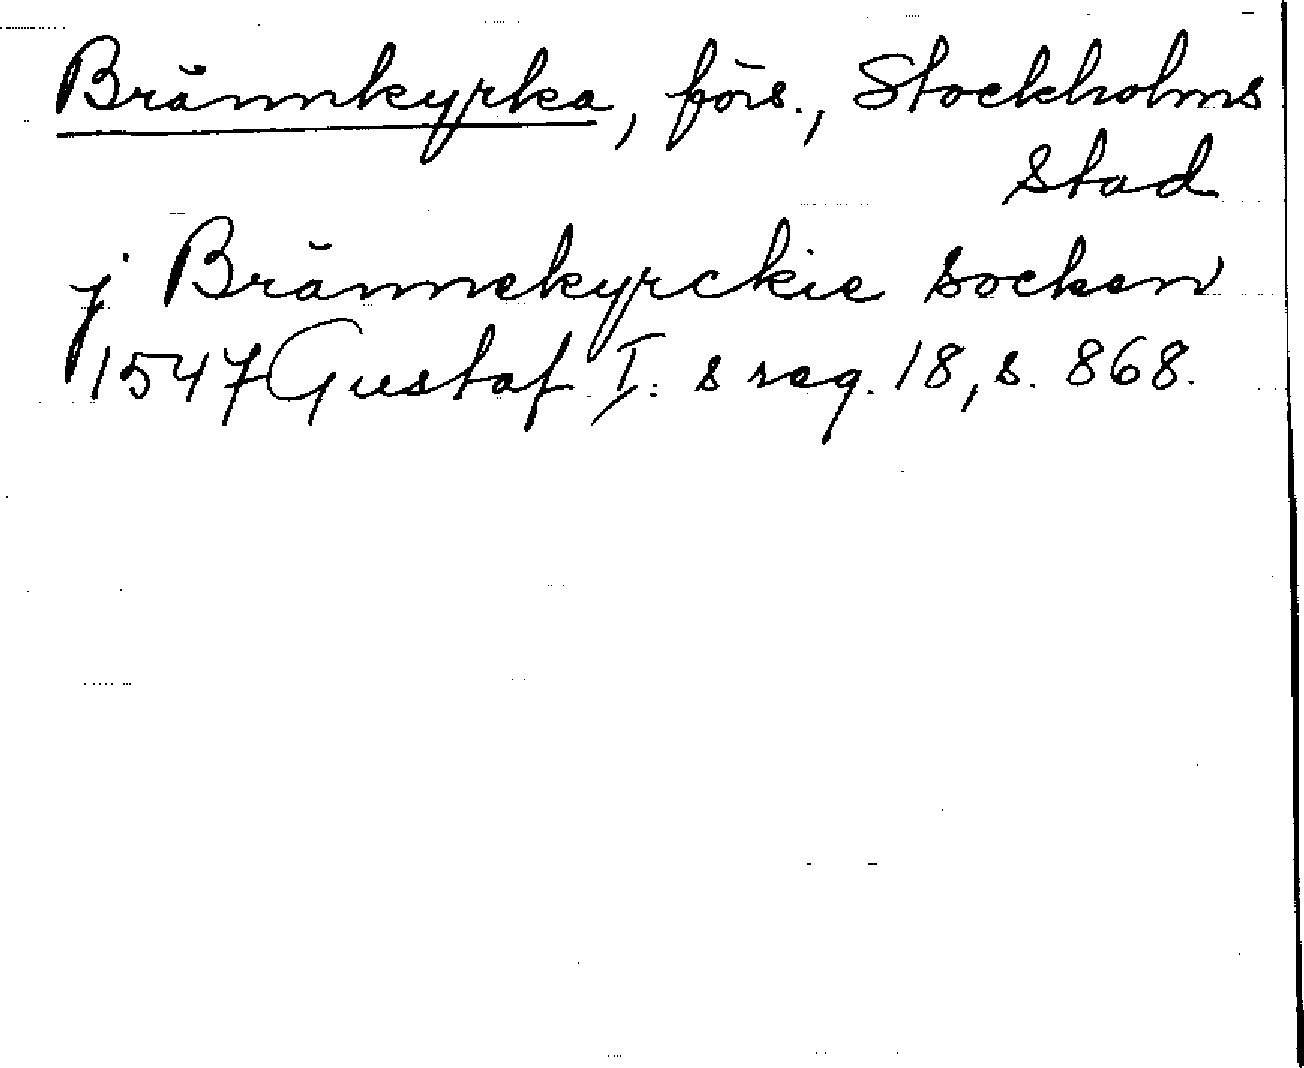 Brännkyrka, förs., Stockholms
stad
j Brännekyrckie socken
1547 Gustaf I:s reg. 18, s. 868.